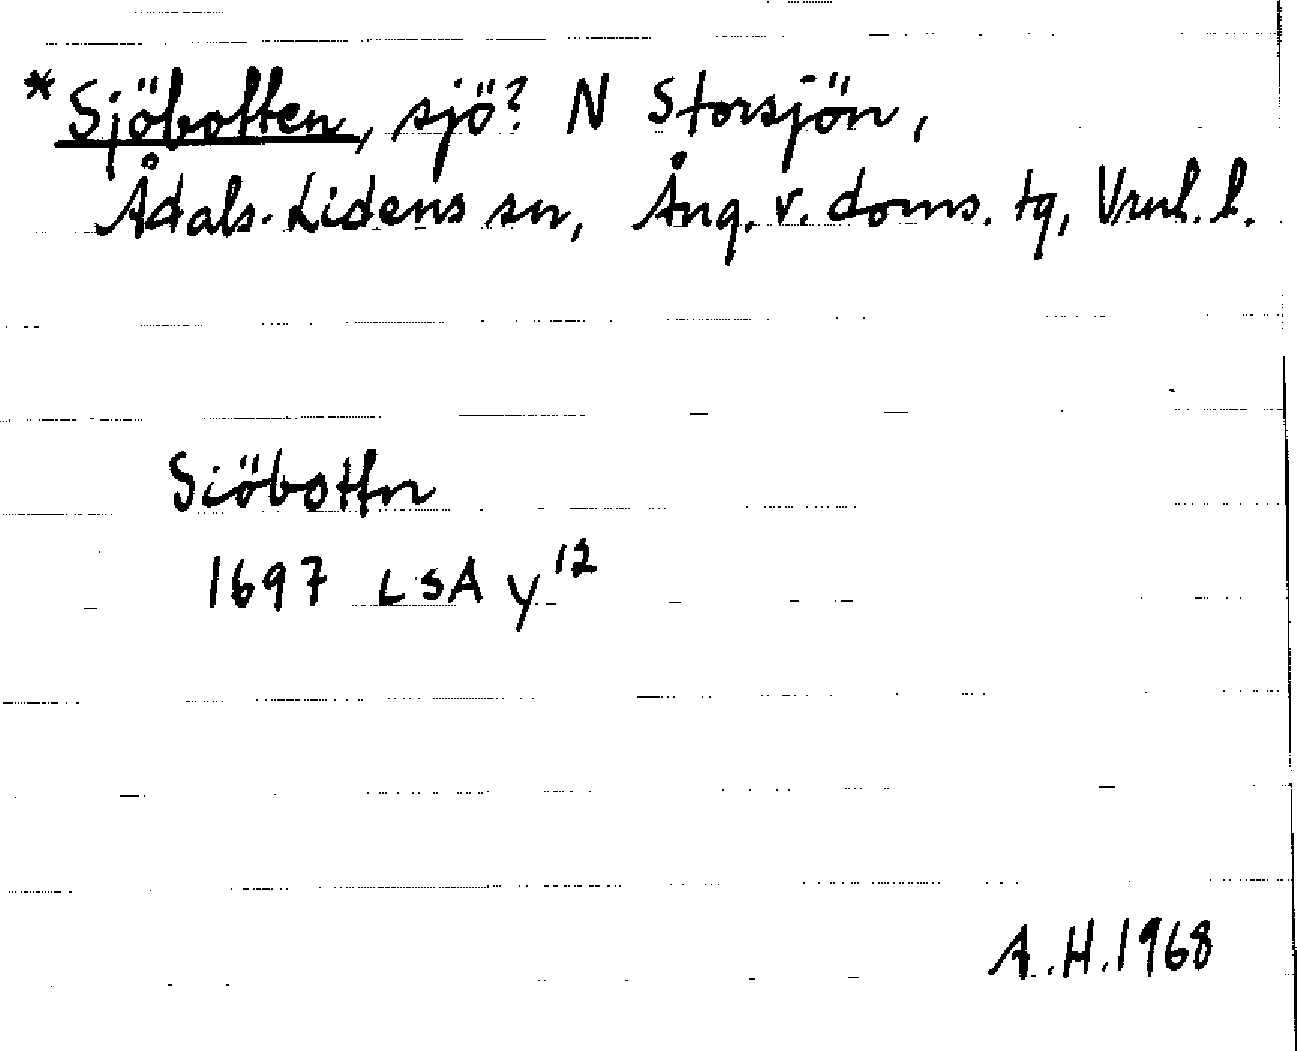 *Sjöbotten, sjö? N Storsjön,
Ådals-Lidens sn, Ång. v. doms. tg, Vrnl. l.
Siöbottn
1697 LSA Y 12
A.H. 1968